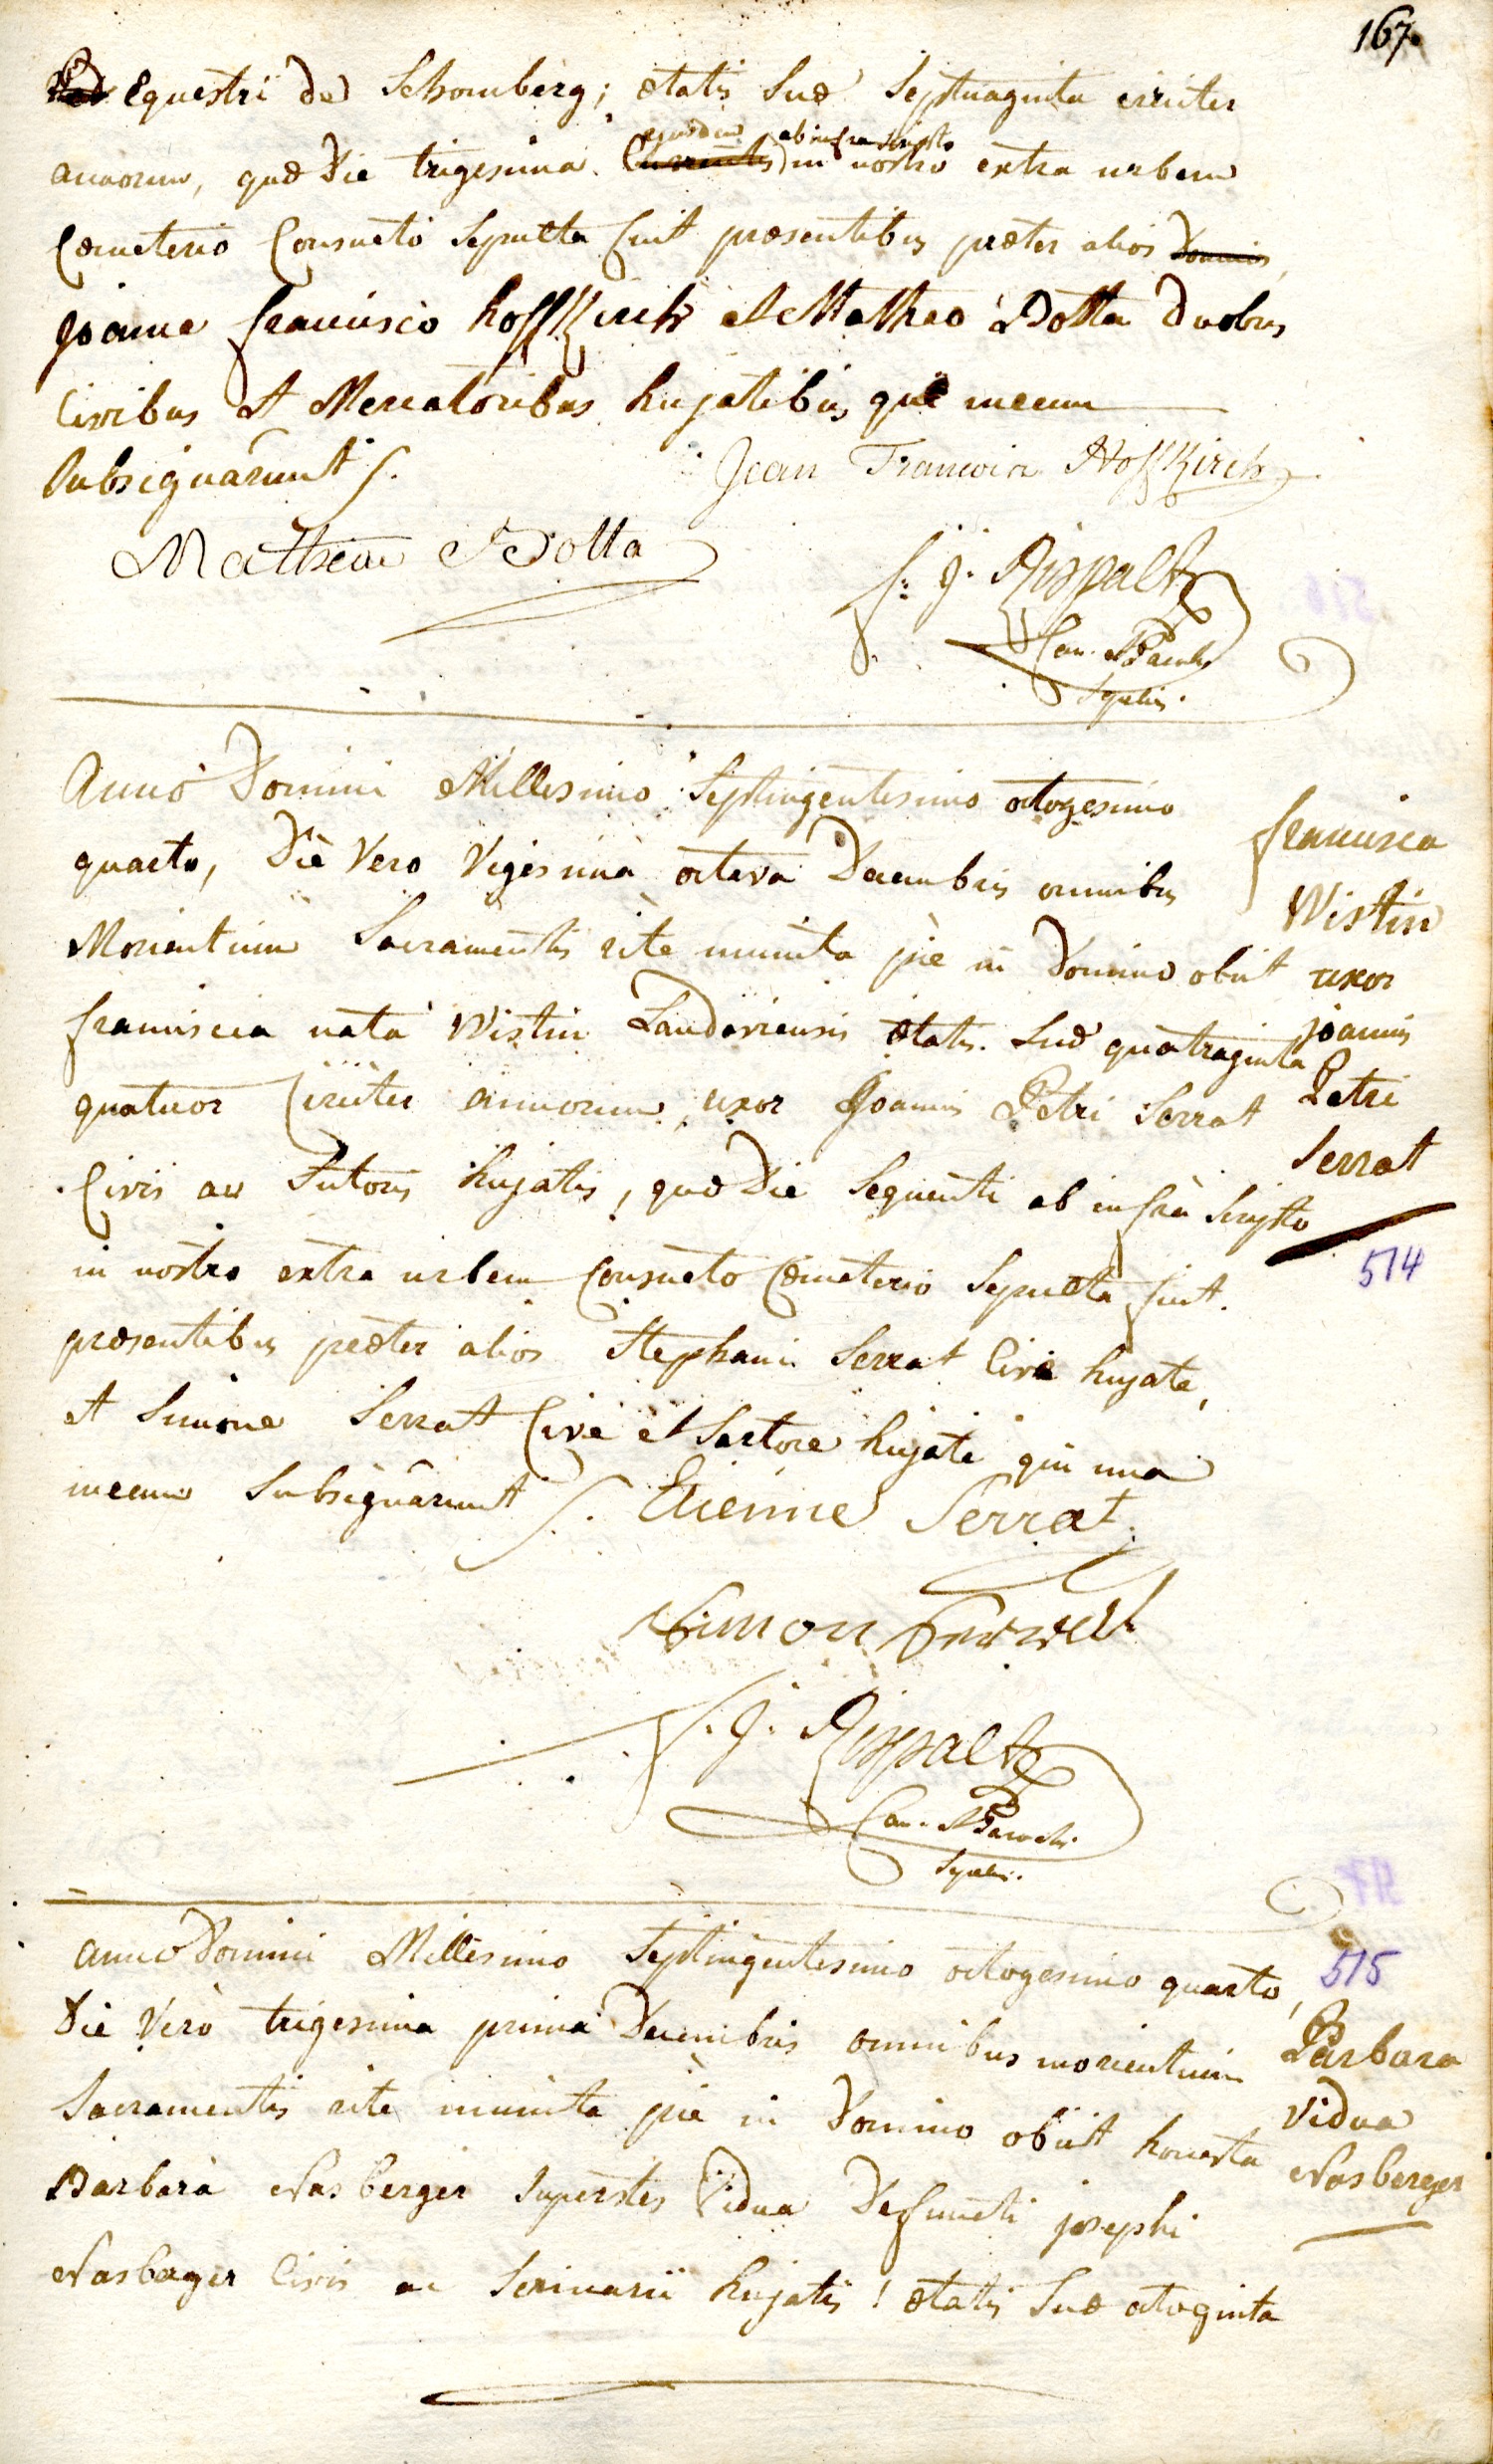 167.
Equestri de Schomberg; ætatis suæ septuaginta circiter
ejusdem ab infra scripto
annorum, quæ die trigesima currentis in nostro extra urbem
Cœmeterio Consueto Sepulta fuit præsentibus præter alios Dominis
joanne francisco hoffkirch et Matheo Dotta duobus
Civibus et Mercatoribus hujatibus qui mecum
Subsignarunt /.
Jean Francoia Hoffkirch
Matheus Dotta
f: j: Rispalt
Can. et Paroch.
Spalis.
Anno Domini Millesimo Septingentesimo octogesimo
quarto, Die Vero Vigesima octava Decembris omnibus
Morientium Sacramentis rite munita pie in Domino obiit
francisca nata Wistin Landaviensis ætatis suæ quatraginta
quatuor Circiter annorum, uxor Joannis Petri Serrat
Civis ac Sutoris hujatis, quæ Die Sequenti ab infra Scripto
in nostro extra urbem Consueto Cœmeterio Sepulta fuit.
præsentibus præter alios Stephani Serrat Cive hujate,
et Simone Serrat Cive et Sartore hujate qui una
mecum Subsignarunt /.
francisca
Wistin
uxor
joannis
Petri
Serrat
514
Etienne Serrat
Simon Serrat
f. j. Rispalt
Can. et Paroch.
Spalis.
Anno Domini Millesimo Septingentesimo octogesimo quarto,
Die Vero trigesima prima Decembris omnibus morientium
Sacramentis rite munita pie in Domino obiit honesta
Barbara Nasberger Superstes Vidua Defuncti josephi
Nasberger Civis ac Scrinarii hujatis! ætatis Suæ octoginta
515
Barbara
Vidua
Nasberger